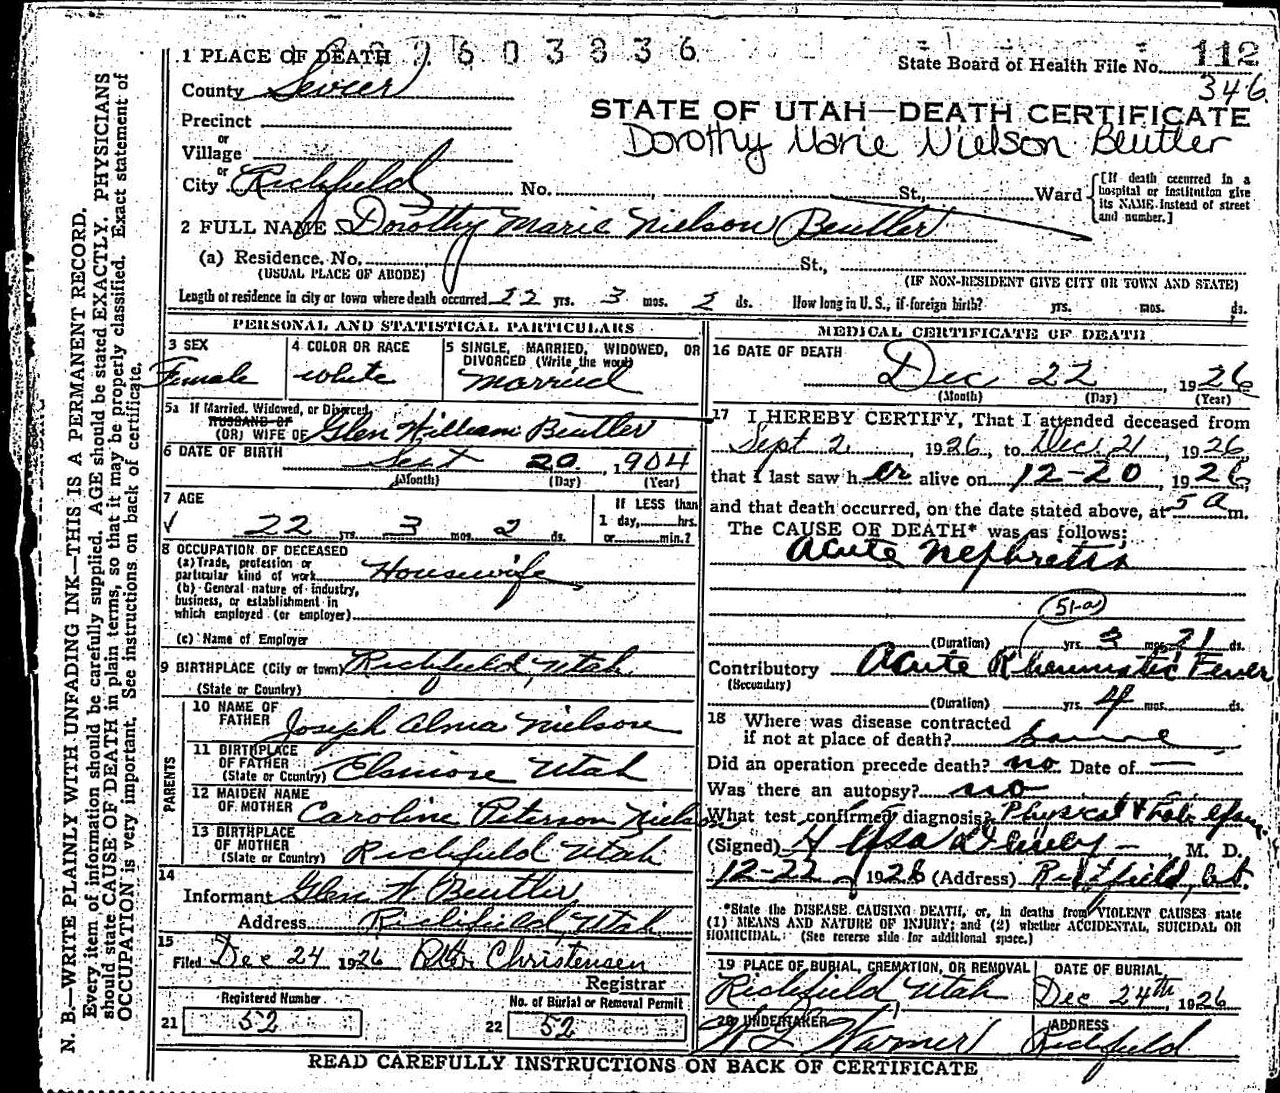 1 PLACE OF DEATH 2603836
State Board of Health File No. 112
346
County Sevier
STATE OF UTAH—DEATH CERTIFICATE
Precinct
Dorothy Marie Nielson Beutler
or
Village
or
City Richfield No. St., Ward
[If death occurred in a hospital or institution give its NAME instead of street and number.]
2 FULL NAME Dorothy Marie Nielson Beutler
(a) Residence. No. St.,
(USUAL PLACE OF ABODE) (IF NON-RESIDENT GIVE CITY OR TOWN AND STATE)
Length of residence in city or town where death occurred 22 yrs. 3 mos. 2 ds. How long in U.S., if foreign birth? yrs. mos. ds.
PERSONAL AND STATISTICAL PARTICULARS
3 SEX
Female
4 COLOR OR RACE
white
5 SINGLE, MARRIED, WIDOWED, OR
DIVORCED (Write the word)
Married
5a If Married, Widowed, or Divorced
HUSBAND OF
(OR) WIFE OF Glen William Beutler
6 DATE OF BIRTH Sept 20, 1904
(Month) (Day) (Year)
7 AGE
22 yrs. 3 mos. 2 ds.
If LESS than
1 day, hrs.
or min.?
8 OCCUPATION OF DECEASED
(a) Trade, profession or
particular kind of work Housewife
(b) General nature of industry,
business, or establishment in
which employed (or employer)
(c) Name of Employer
9 BIRTHPLACE (City or town) Richfield, Utah
(State or Country)
PARENTS
10 NAME OF
FATHER Joseph Alma Nielson
11 BIRTHPLACE
OF FATHER
(State or Country) Elsinore Utah
12 MAIDEN NAME
OF MOTHER Caroline Peterson Nielson
13 BIRTHPLACE
OF MOTHER
(State or Country) Richfield Utah
14
Informant Glen W Beutler
Address Richfield, Utah
15
Filed Dec 24 1926 Christensen
Registrar
Registered Number
21 52
No. of Burial or Removal Permit
22 52
MEDICAL CERTIFICATE OF DEATH
16 DATE OF DEATH
Dec 22, 1926
(Month) (Day) (Year)
17 I HEREBY CERTIFY, That I attended deceased from
Sept 2, 1926, to Dec. 21, 1926,
that I last saw her alive on 12-20, 1926,
and that death occurred, on the date stated above, at 5 a m.
The CAUSE OF DEATH* was as follows:
Acute Nephretis
51-a
(Duration) yrs. 3 mos. 21 ds.
Contributory Acute Rheumatic Fever
(Secondary)
(Duration) yrs. 4 mos. ds.
18 Where was disease contracted
if not at place of death?
Did an operation precede death? no Date of —
Was there an autopsy? no
What test confirmed diagnosis? Physical &
(Signed) M. D.
12-22, 1926 (Address) Richfield, Ut.
*State the DISEASE CAUSING DEATH, or, in deaths from VIOLENT CAUSES state
(1) MEANS AND NATURE OF INJURY; and (2) whether ACCIDENTAL, SUICIDAL OR
HOMICIDAL. (See reverse side for additional space.)
19 PLACE OF BURIAL, CREMATION, OR REMOVAL
Richfield Utah
DATE OF BURIAL
Dec 24th, 1926
20 UNDERTAKER
Warner
ADDRESS
Richfield
READ CAREFULLY INSTRUCTIONS ON BACK OF CERTIFICATE
N. B.—WRITE PLAINLY WITH UNFADING INK—THIS IS A PERMANENT RECORD.
Every item of information should be carefully supplied. AGE should be stated EXACTLY. PHYSICIANS
should state CAUSE OF DEATH in plain terms, so that it may be properly classified. Exact statement of
OCCUPATION is very important. See instructions on back of certificate.